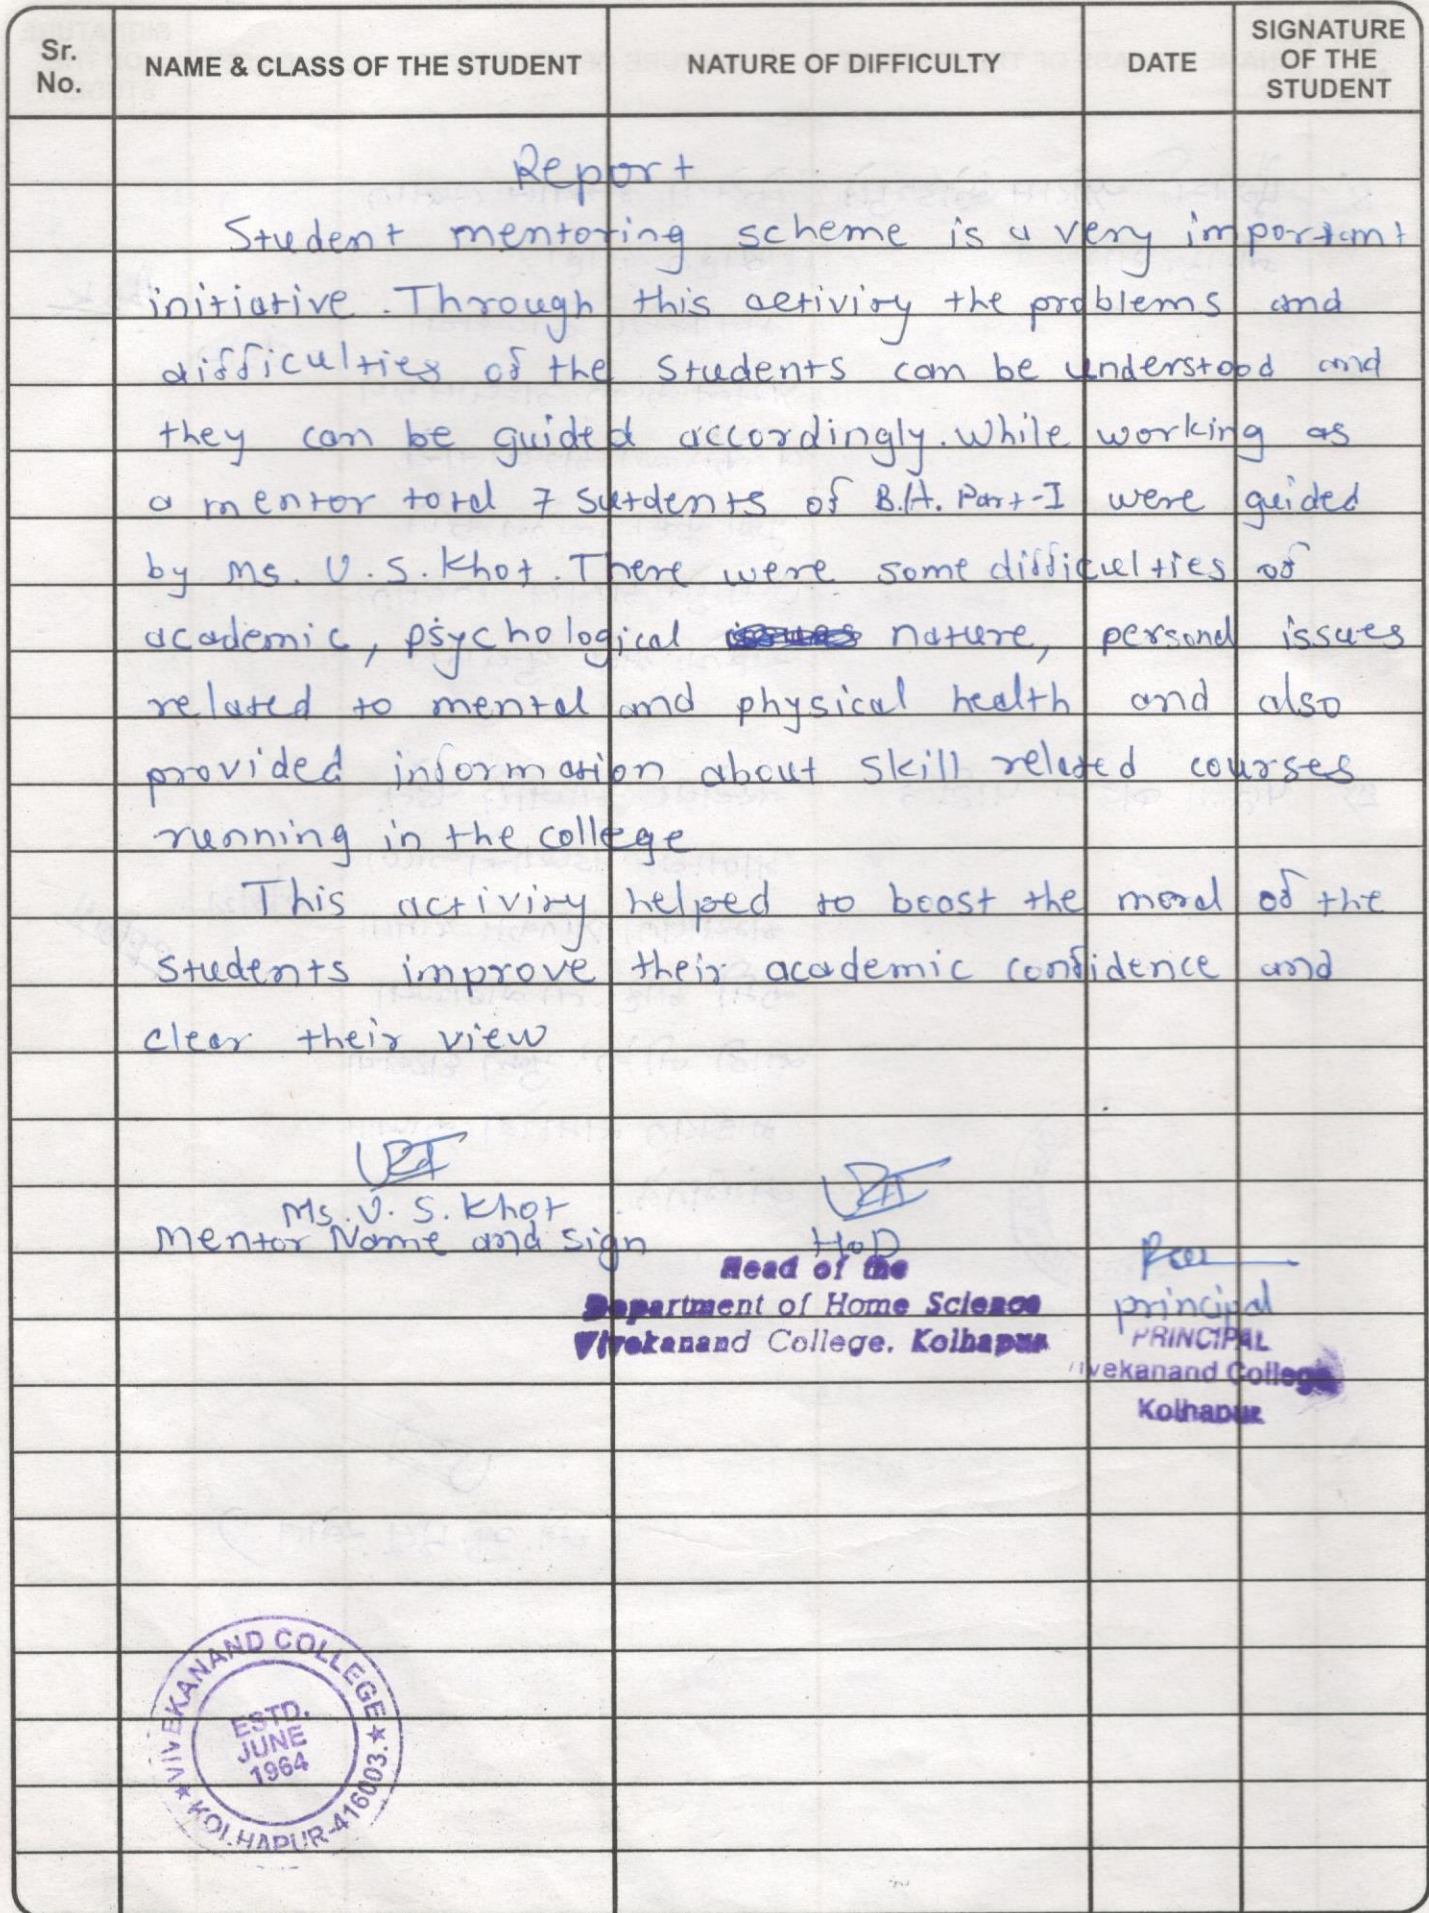 Sr. No.
NAME & CLASS OF THE STUDENT
NATURE OF DIFFICULTY
DATE
SIGNATURE OF THE STUDENT
Report
Student mentoring scheme is a very important
initiative. Through this activity the problems and
difficulties of the students can be understood and
they can be guided accordingly. While working as
a mentor total 7 sutdents of B.A. Part-I were guided
by Ms. U. S. Khot. There were some difficulties of
academic, psychological nature, personal issues
related to mental and physical health and also
provided information about skill related courses
running in the college
This activity helped to boost the moral of the
students improve their academic confidence and
clear their view
Ms. U. S. Khot
Mentor Name and sign
HoD
Head of the
Department of Home Science
Vivekanand College, Kolhapur
principal
PRINCIPAL
Vivekanand College
Kolhapur
VIVEKANAND COLLEGE
ESTD.
JUNE
1964
KOLHAPUR-416003.